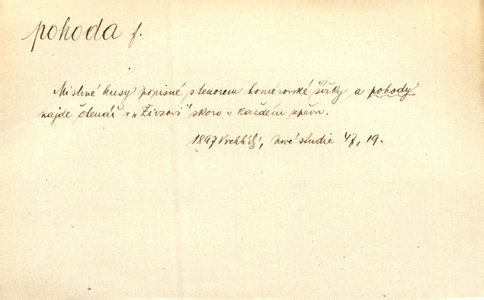 pohoda f.
Mistrné kusy popisné s tenorem homérovské šířky a pohody
najde čtenář v „Živzovi“ skoro v každém zpěvu.
1897 Vrchlický, Nové studie 47, 19.